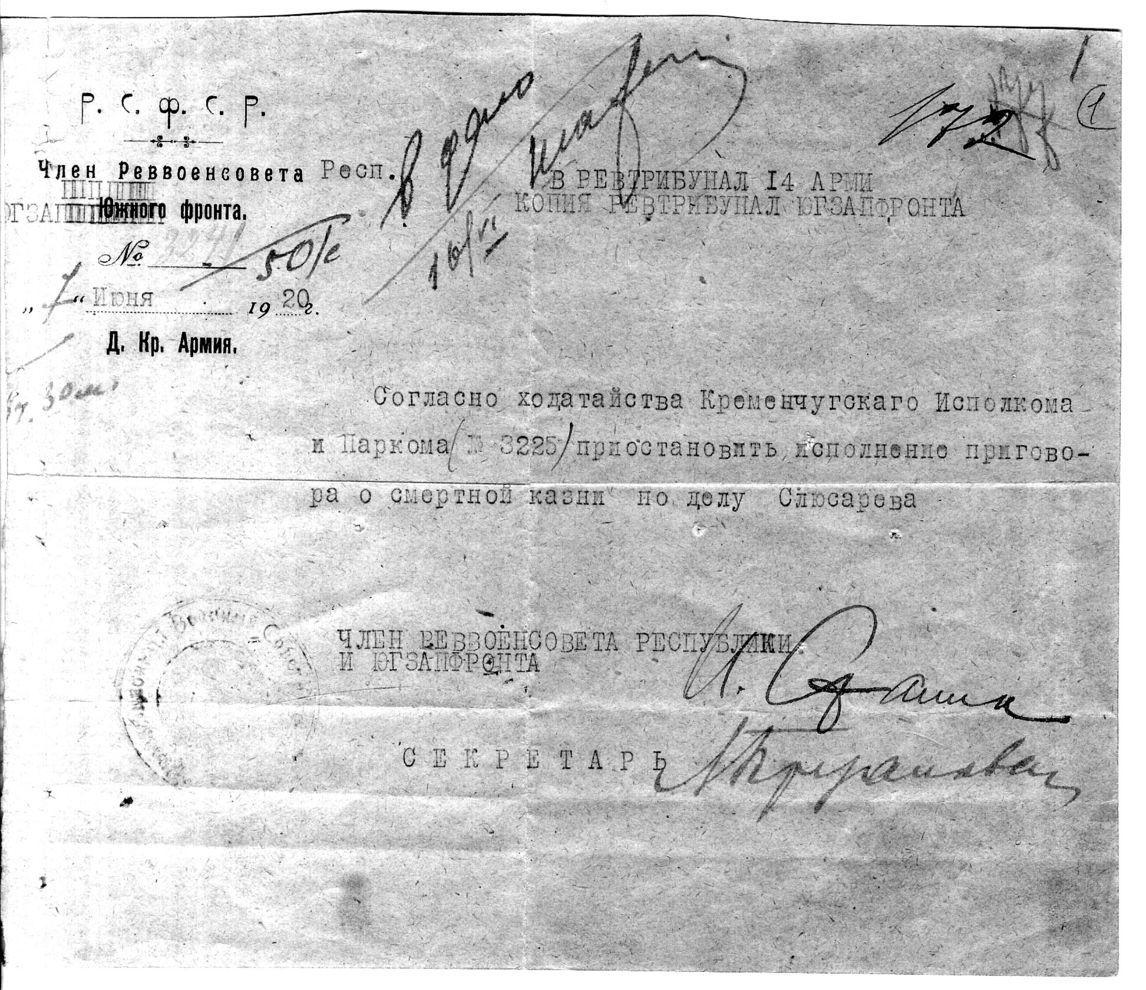 Р. С. Ф. С. Р.
Член Реввоенсовета Респ.
ЮГЗАП Южного фронта.
№ 3241
50/с
„7“ Июня 1920 г.
Д. Кр. Армия.
В дело
16/VI
172
1
В РЕВТРИБУНАЛ 14 АРМИ
КОПИЯ РЕВТРИБУНАЛ ЮГЗАПФРОНТА
Согласно ходатайства Кременчугскаго Исполкома
и Паркома (№ 3225) приостановить исполнение пригово-
ра о смертной казни по делу Слюсарева
ЧЛЕН РЕВВОЕНСОВЕТА РЕСПУБЛИКИ
И ЮГЗАПФРОНТА
И. Сталин
СЕКРЕТАРЬ